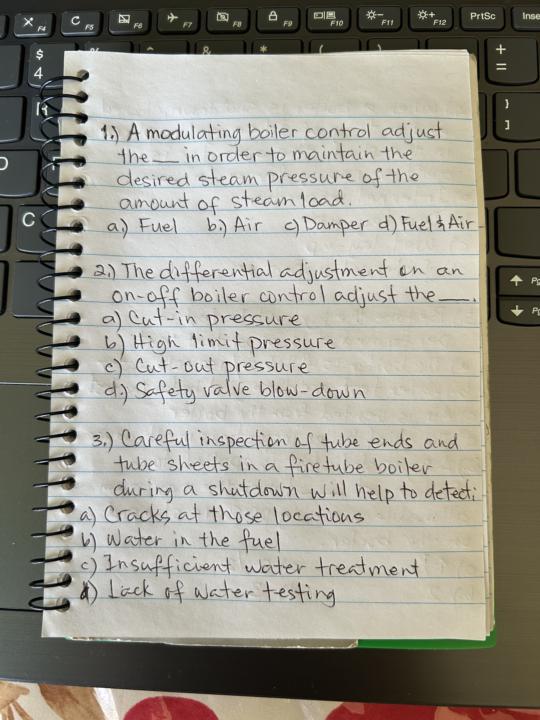 F4
F5
F6
F7
F8
F9
F10
F11
F12
PrtSc
Inse
$
4
%
&
*
(
)
+
=
}
]
C
1.) A modulating boiler control adjust
the __ in order to maintain the
desired steam pressure of the
amount of steam load.
a.) Fuel b.) Air c) Damper d) Fuel & Air
2.) The differential adjustment on an
on-off boiler control adjust the ___.
a) Cut-in pressure
b) High limit pressure
c) Cut-out pressure
d.) Safety valve blow-down
3.) Careful inspection of tube ends and
tube sheets in a firetube boiler
during a shutdown will help to detect:
a) Cracks at those locations
b) Water in the fuel
c) Insufficient water treatment
d) Lack of water testing